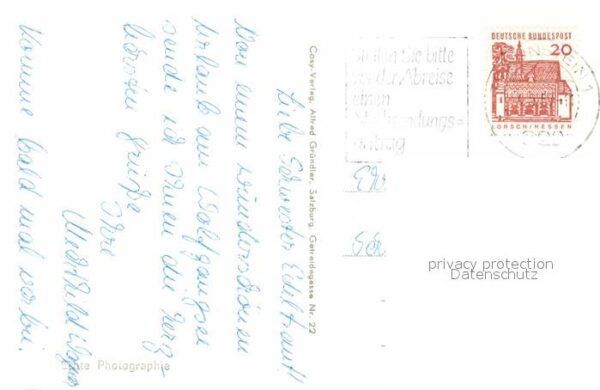 Liebe Schwester Edeltraut!
Von einem wunderschönen
Urlaub am Wolfgangsee
sende ich Ihnen die herz-
lichsten Grüße
Ihre
Mechthild
Komme bald mal vorbei.
Cosy-Verlag, Alfred Gründler, Salzburg, Getreidegasse Nr. 22
Echte Photographie
Stellen Sie bitte
vor der Abreise
einen
Nachsendungs=
antrag
DEUTSCHE BUNDESPOST
20
LORSCH/HESSEN
privacy protection
Datenschutz